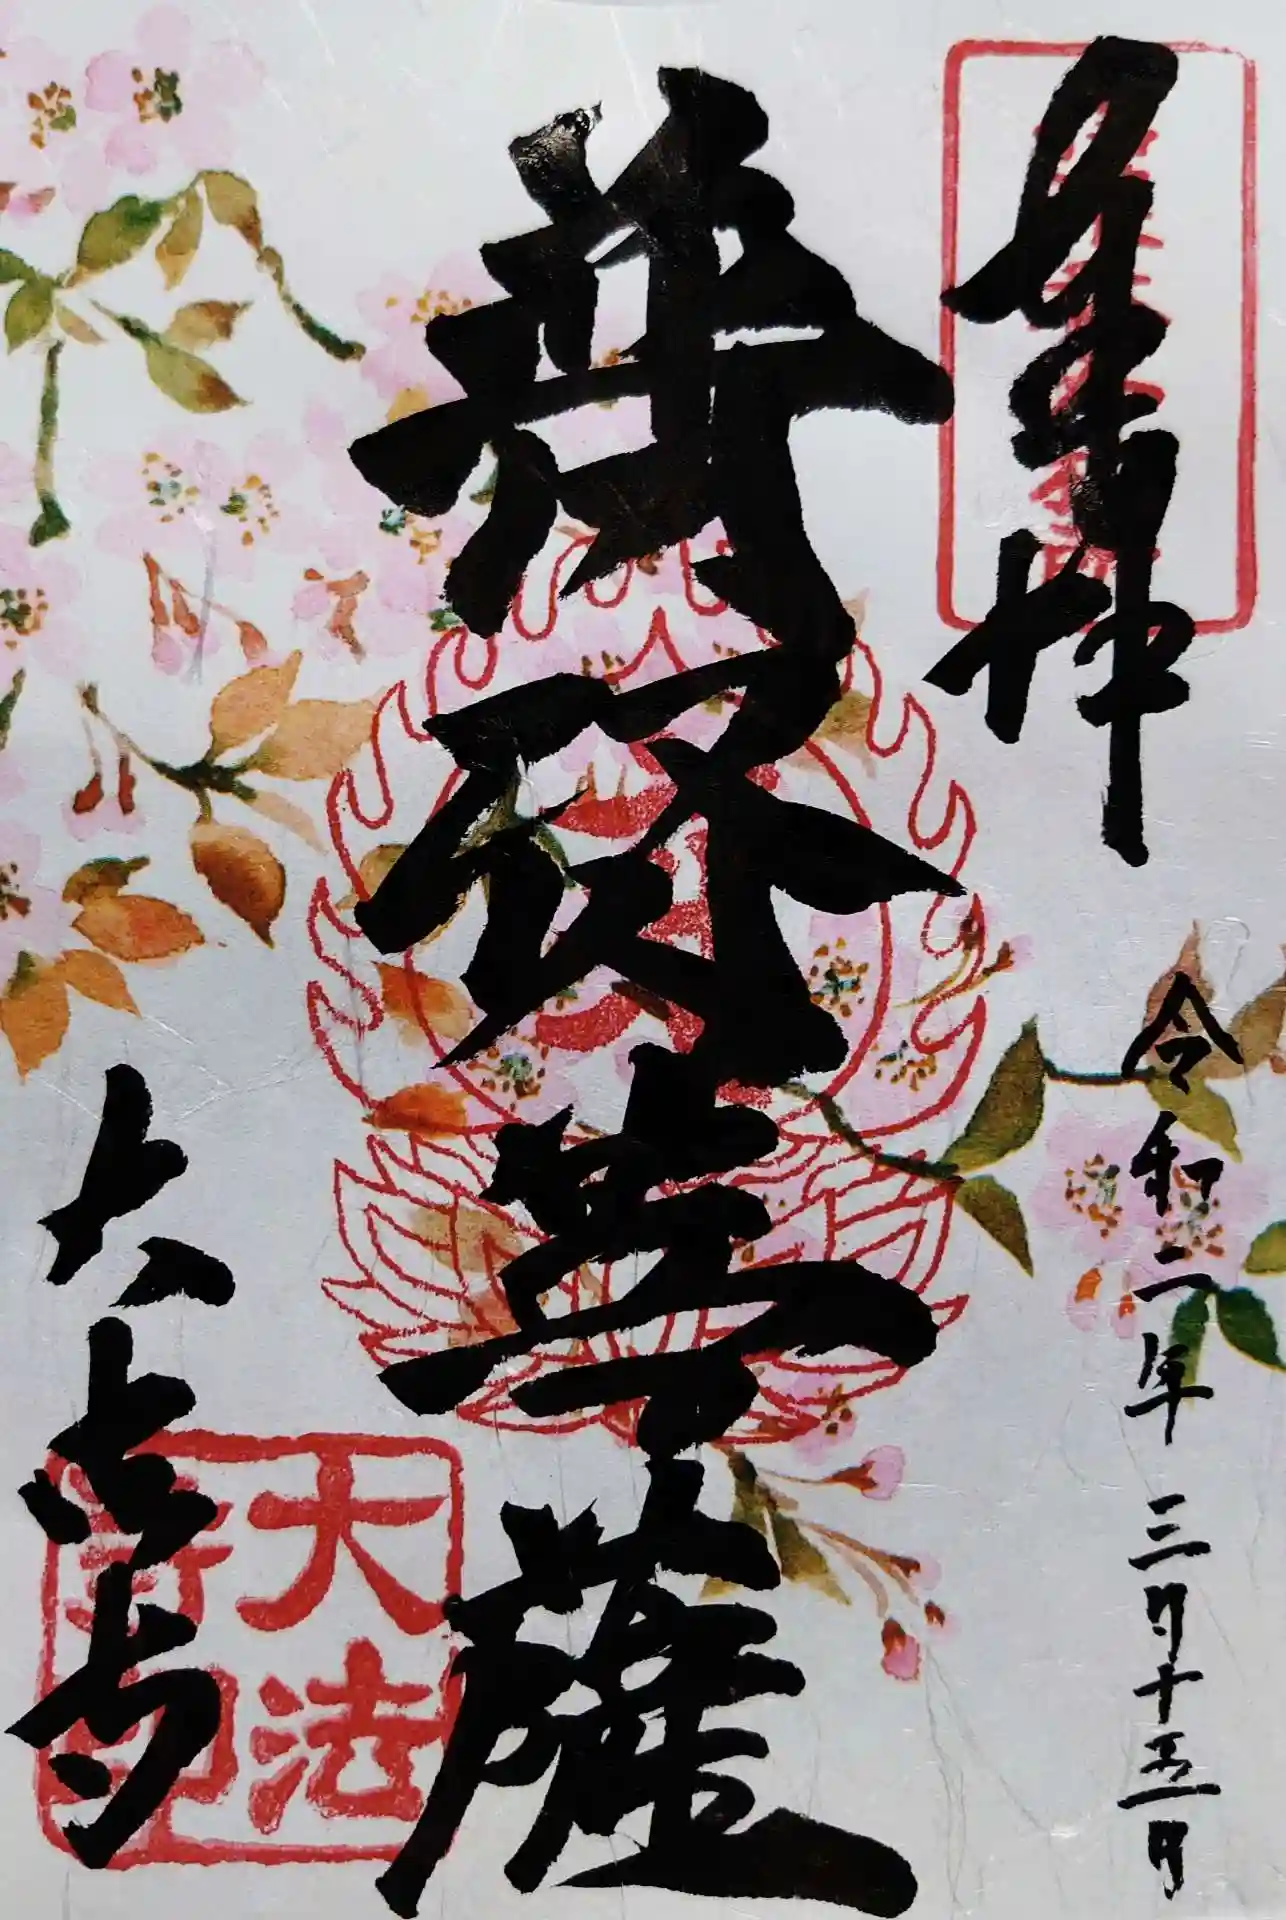 奉拝
令和二年三月十五日
普賢菩薩
大法寺
大法
寺印